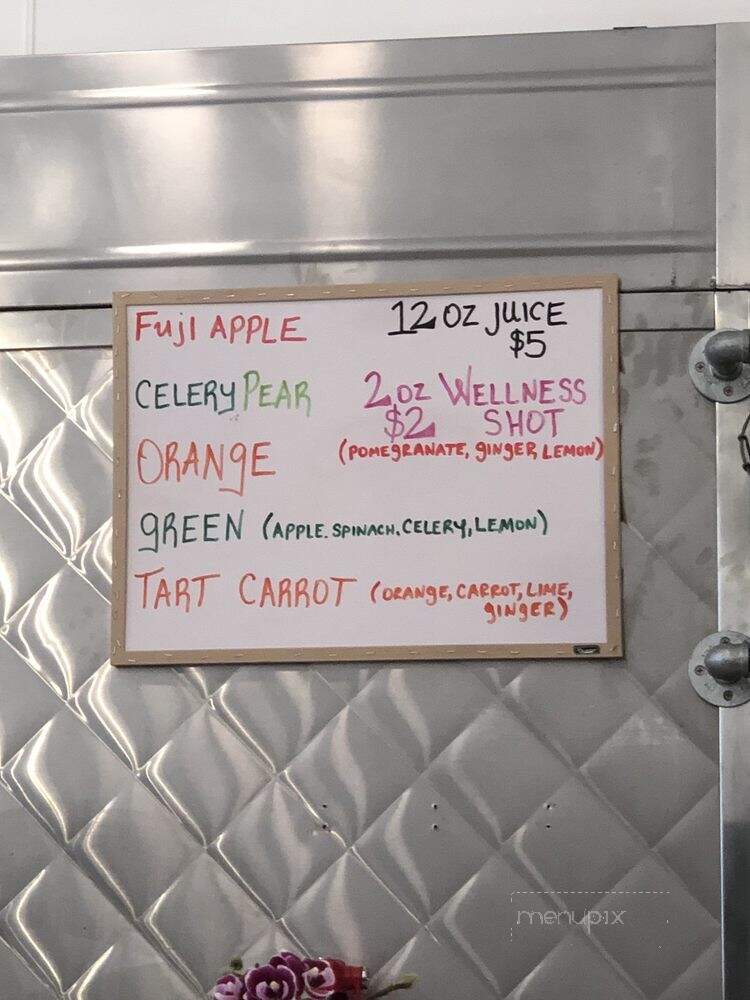 Fuji APPLE
12 OZ JUICE
$5
CELERY PEAR
2 OZ WELLNESS
$2 SHOT
(POMEGRANATE, GINGER, LEMON)
ORANGE
GREEN (APPLE. SPINACH, CELERY, LEMON)
TART CARROT (ORANGE, CARROT, LIME,
GINGER)
menupix